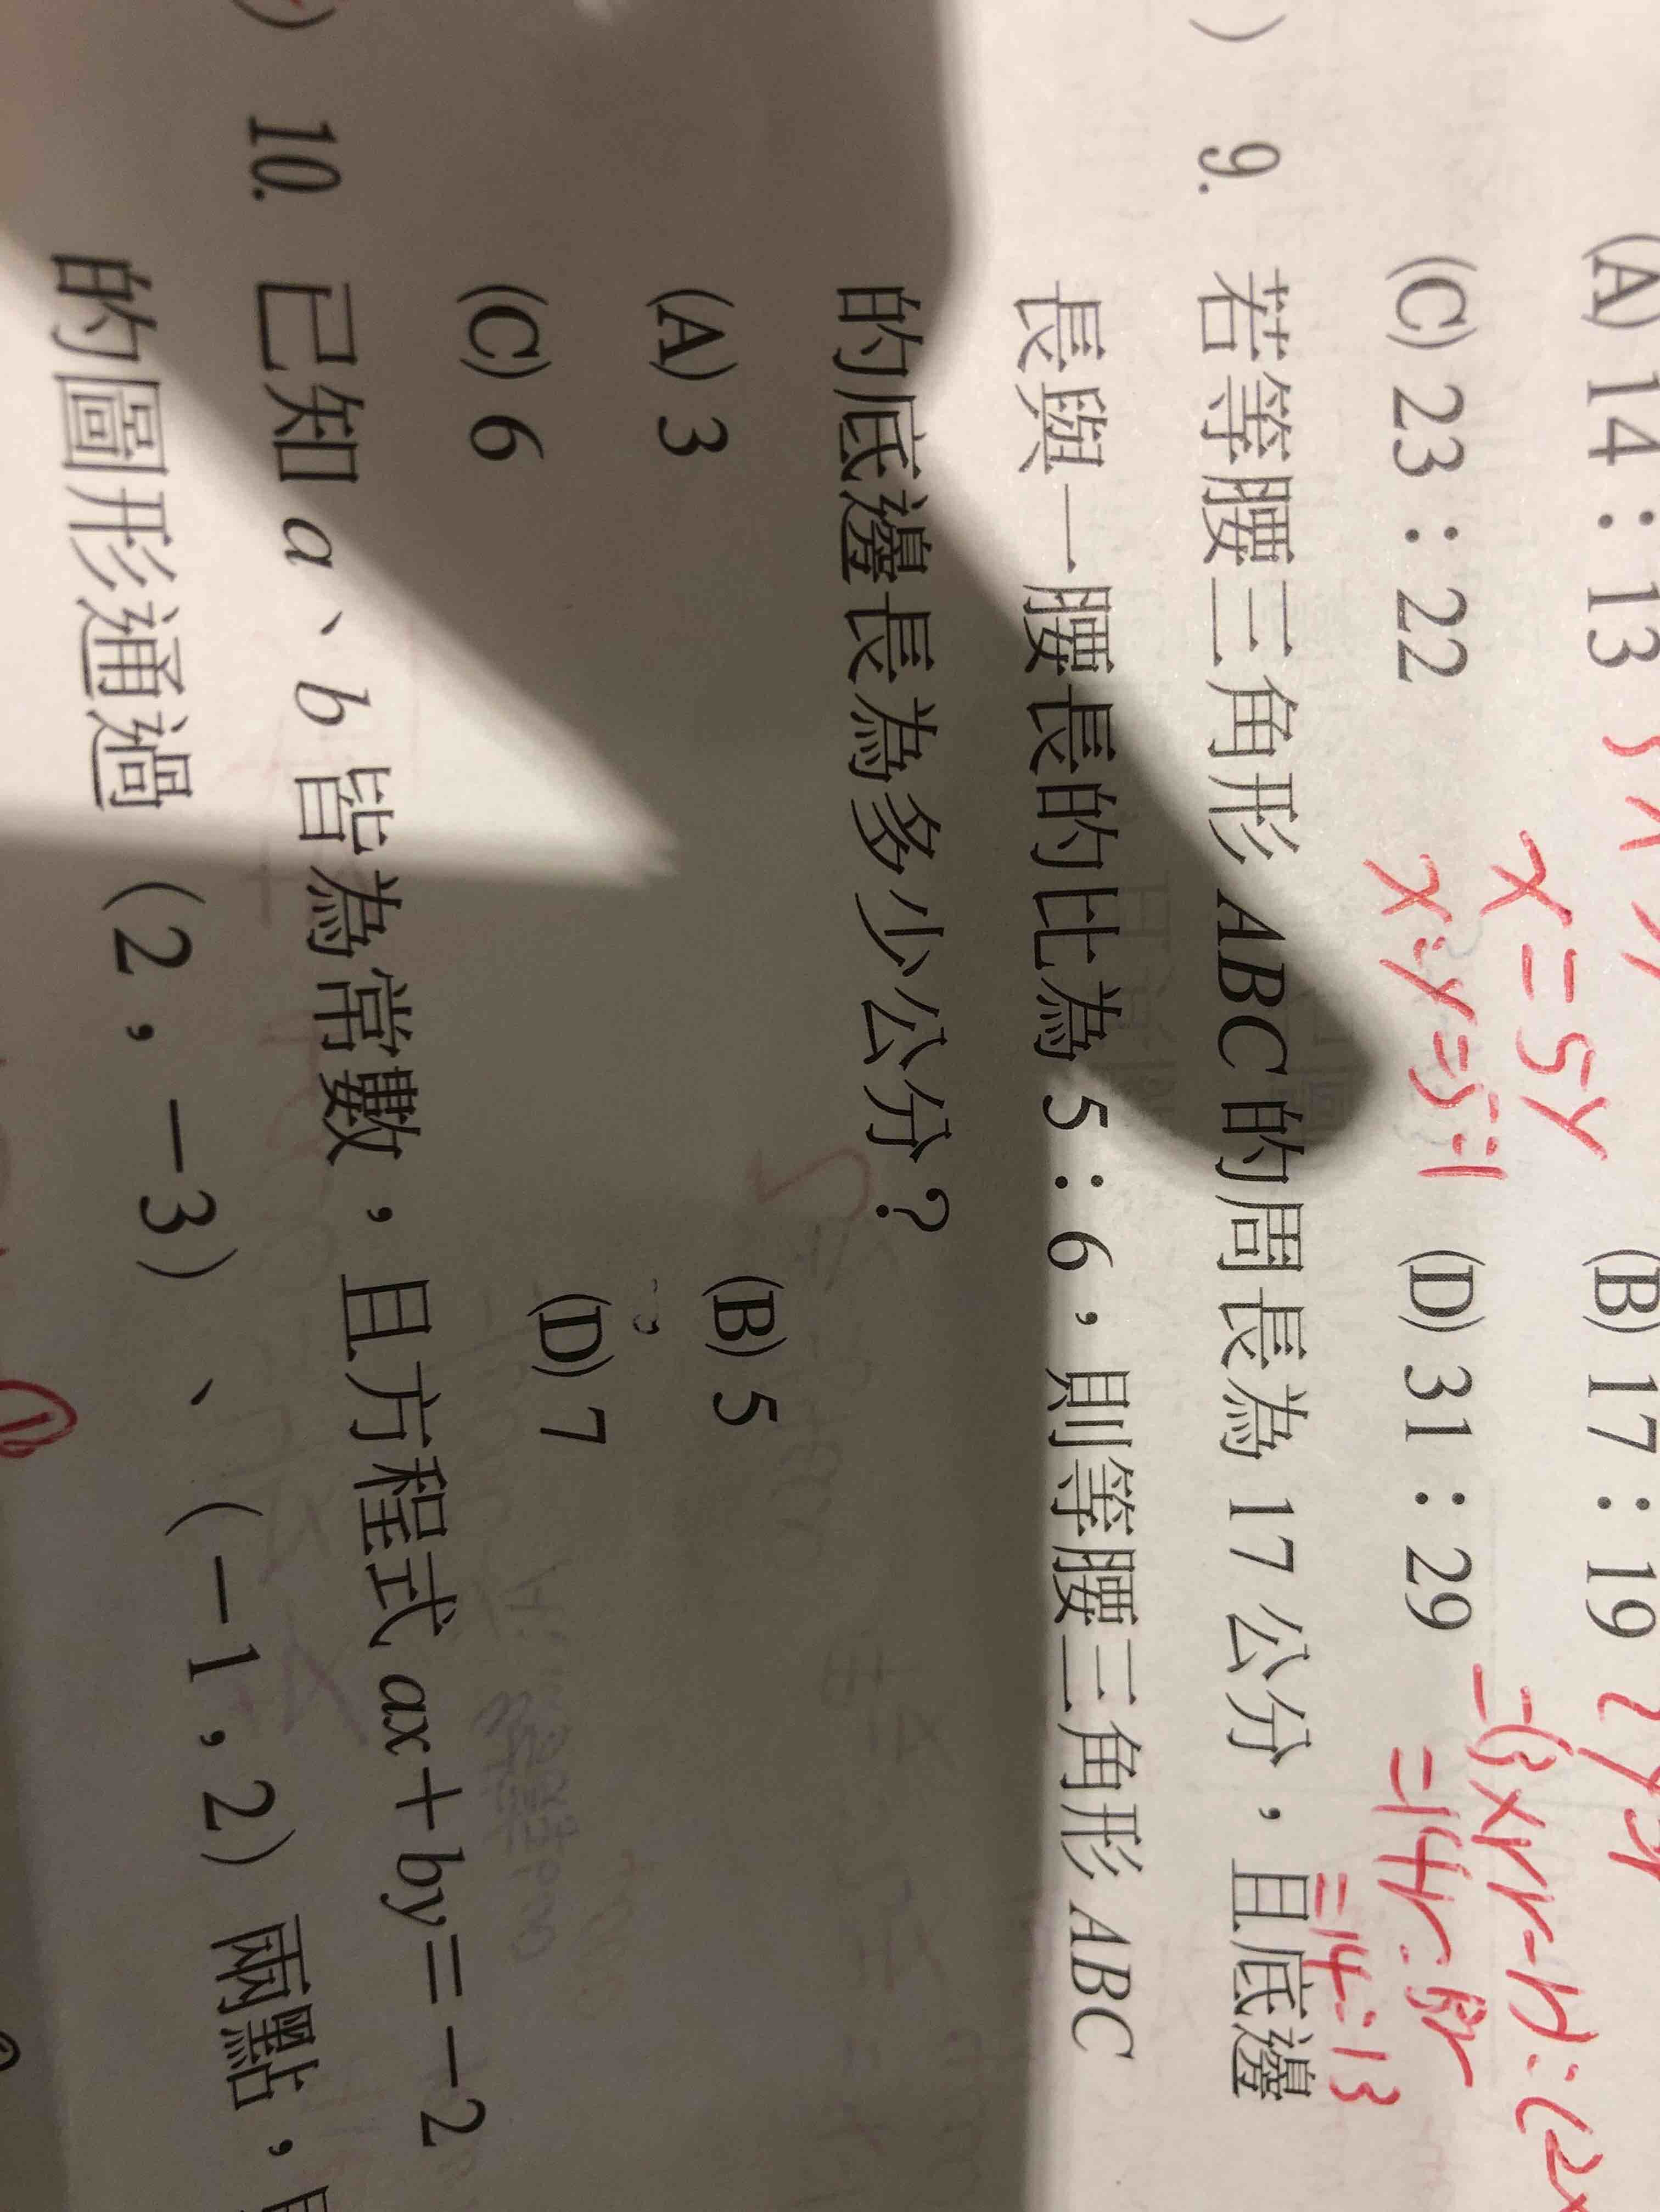 (A) 14：13 (B) 17：19
(C) 23：22 (D) 31：29
x=5y
x:y=5:1
=14y:13y
=14:13
) 9. 若等腰三角形 ABC 的周長為 17 公分，且底邊
長與一腰長的比為 5：6，則等腰三角形 ABC
的底邊長為多少公分？
(A) 3 (B) 5
(C) 6 (D) 7
) 10. 已知 a、b 皆為常數，且方程式 ax＋by＝－2
的圖形通過（2，－3）、（－1，2）兩點，